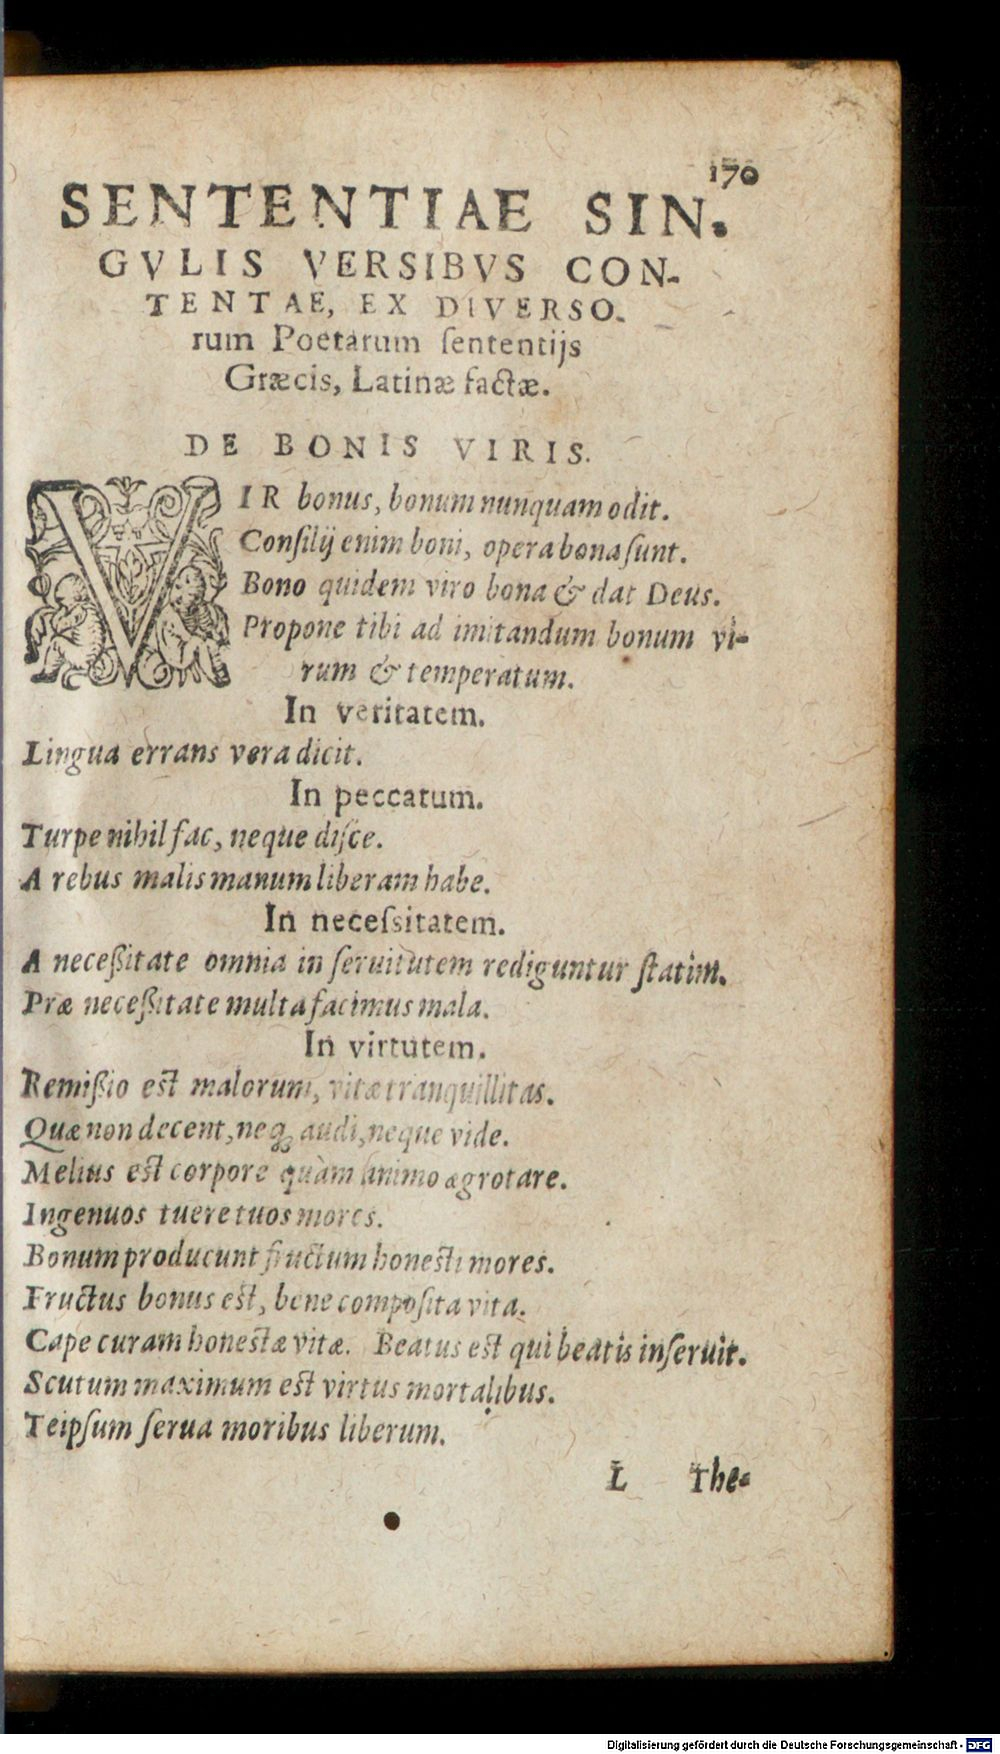 170
SENTENTIAE SIN-
GVLIS VERSIBVS CON-
TENTAE, EX DIVERSO-
rum Poetarum ſententijs
Græcis, Latinæ factæ.
DE BONIS VIRIS.
VIR bonus, bonum nunquam odit.
Conſilij enim boni, opera bona ſunt.
Bono quidem viro bona & dat Deus.
Propone tibi ad imitandum bonum vi-
rum & temperatum.
In veritatem.
Lingua errans vera dicit.
In peccatum.
Turpe nihil fac, neque diſce.
A rebus malis manum liberam habe.
In neceſsitatem.
A neceßitate omnia in ſeruitutem rediguntur ſtatim.
Præ neceßitate multa facimus mala.
In virtutem.
Remißio est malorum, vitæ tranquillitas.
Quæ non decent, neq; audi, neque vide.
Melius est corpore quàm animo ægrotare.
Ingenuos tuere tuos mores.
Bonum producunt fructum honesti mores.
Fructus bonus est, bene compoſita vita.
Cape curam honestæ vitæ. Beatus est qui beatis inſeruit.
Scutum maximum est virtus mortalibus.
Teipſum ſerua moribus liberum.
L The-
Digitalisierung gefördert durch die Deutsche Forschungsgemeinschaft - DFG